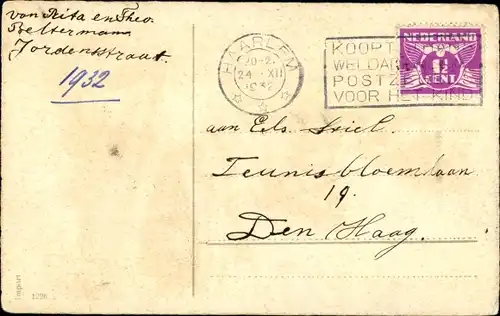 von Rita en Theo
Beltermann
Jordensstraat
1932
HAARLEM
24 XII
1932
KOOPT
WELDA
POSTZ
VOOR HET KIND
NEDERLAND
1½
CENT
aan Eds.
Teunisbloemlaan
19.
Den Haag.
Import